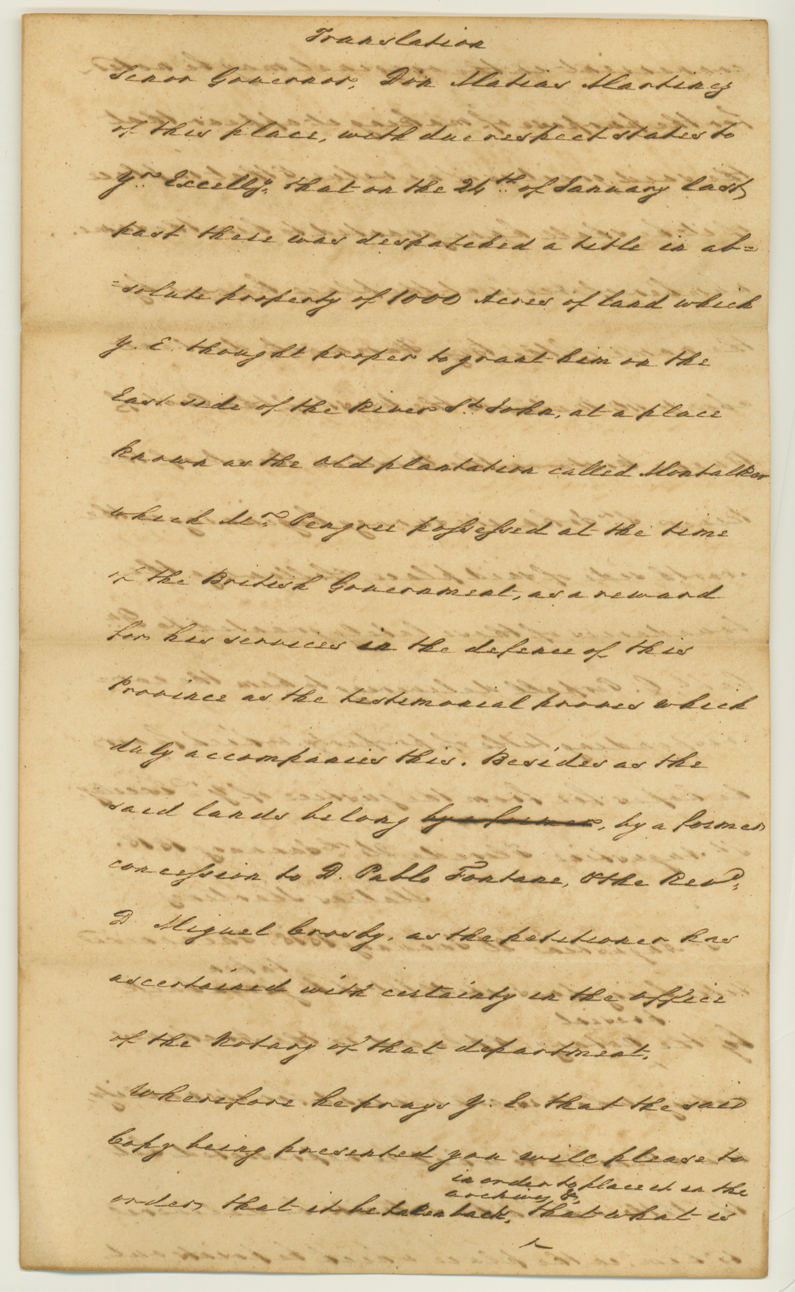 Translation
Senor Governor, Don Matias Martinez
of this place, with due respect states to
yr. Excelly. that on the 24th of January last
past there was despatched a title in ab=
=solute property of 1000 Acres of land which
Y. E. thought proper to grant him on the
East side of the River St. John, at a place
known as the Old plantation called Montalkor
which Mr. Pengree possessed at the time
of the British Government, as a reward
for his services in the defence of this
Province as the testimonial proves which
duly accompanies this. Besides as the
said lands belong by a former, by a former
concession to D. Pablo Fontane, & the Revd.
D Miguel Crosby, as the petitioner has
ascertained with certainty in the office
of the Notary of that department.
Wherefore he prays Y. E. that the said
Copy being presented you will please to
in order to place it in the
archives &
order, that it be taken back, that what is